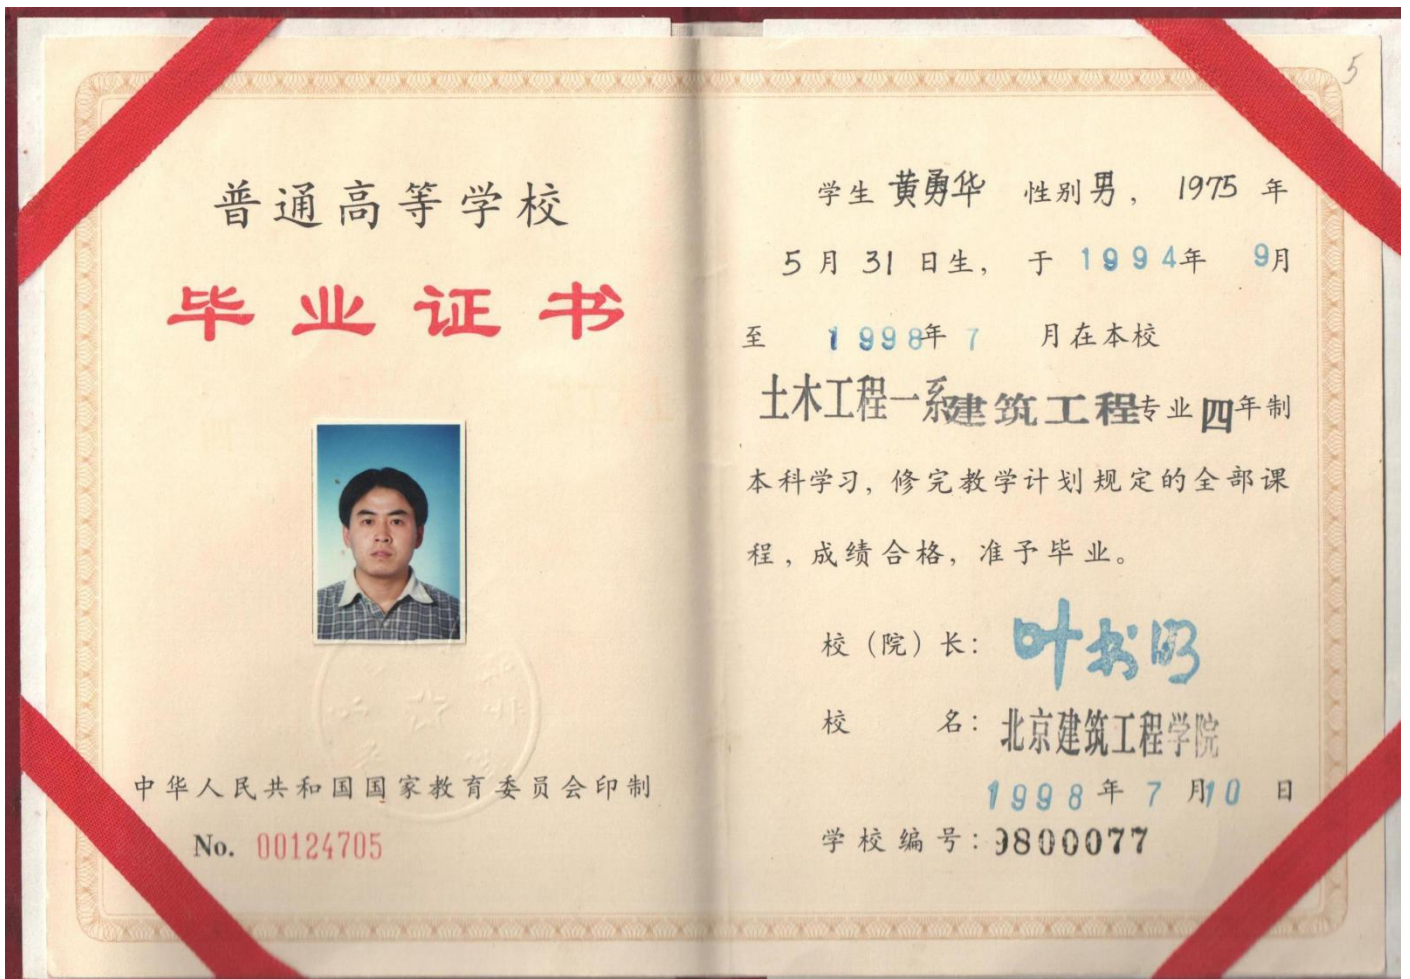 普通高等学校
毕业证书
中华人民共和国国家教育委员会印制
No. 00124705
5
学生 黄勇华 性别 男， 1975 年
5 月 31 日生， 于 1994年 9月
至 1998年 7 月在本校
土木工程一系建筑工程专业四年制
本科学习，修完教学计划规定的全部课
程，成绩合格，准予毕业。
校（院）长： 叶书明
校 名： 北京建筑工程学院
1998 年 7 月10 日
学校编号：9800077